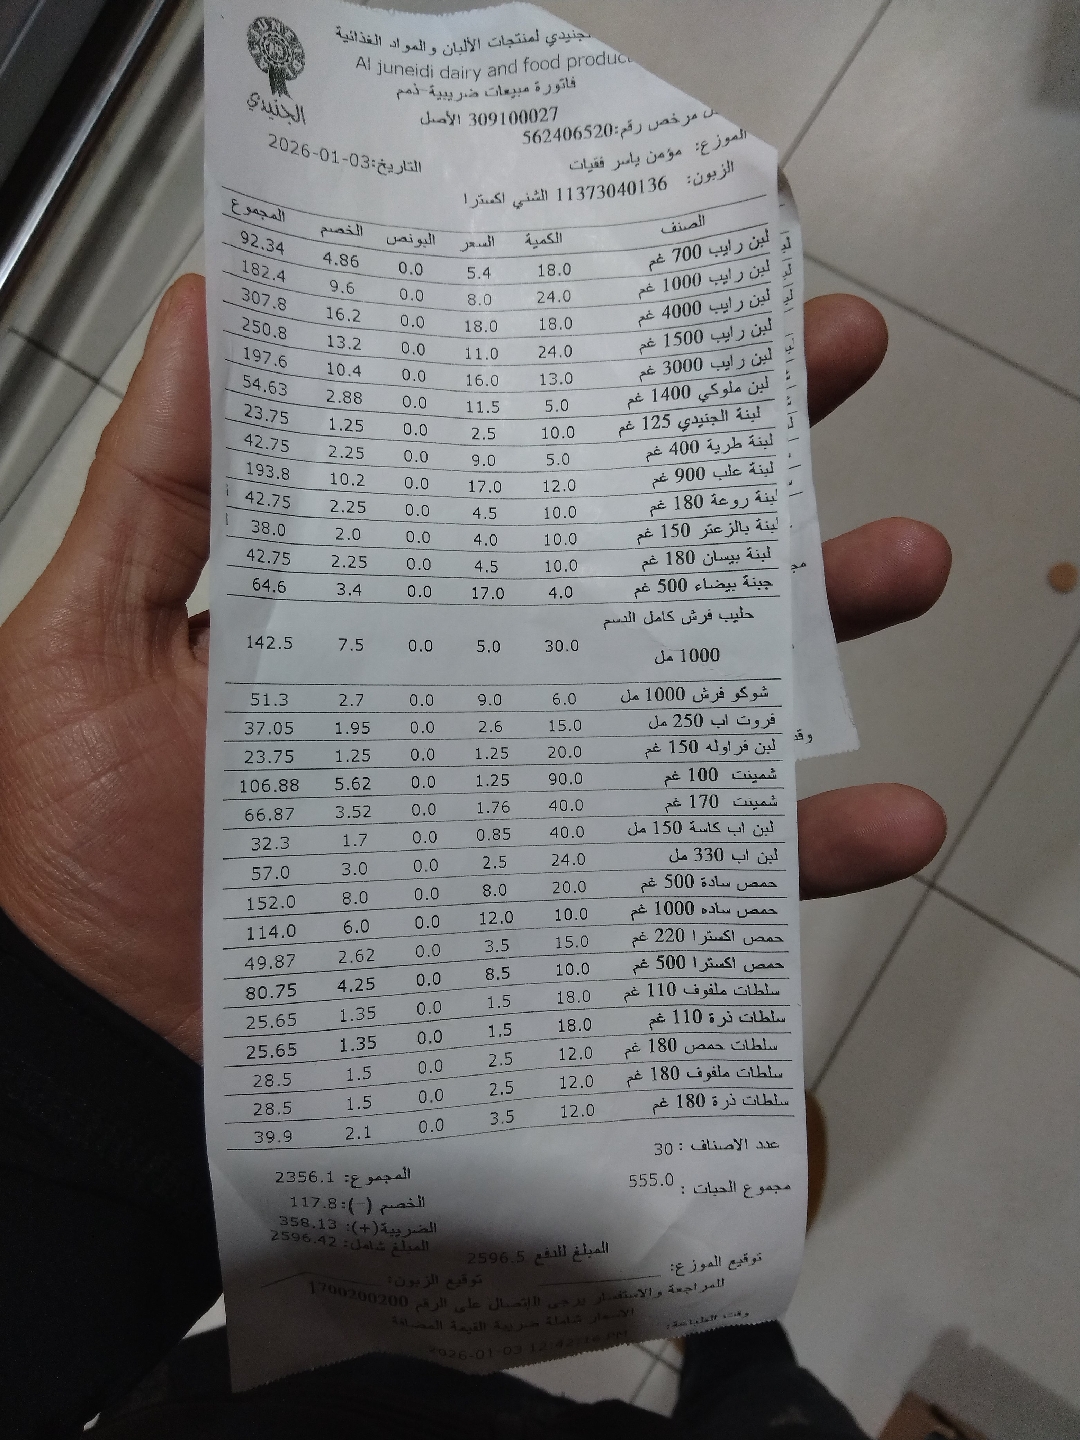 الجنيدي
الجنيدي لمنتجات الألبان والمواد الغذائية
Al juneidi dairy and food produc
فاتورة مبيعات ضريبية-ذمم
309100027 الأصل
مرخص رقم:562406520
التاريخ:2026-01-03
الموزع: مؤمن ياسر فقيات
الزبون: 11373040136 الشني اكسترا
الصنف الكمية السعر البونص الخصم المجموع
لبن رايب 700 غم 18.0 5.4 0.0 4.86 92.34
لبن رايب 1000 غم 24.0 8.0 0.0 9.6 182.4
لبن رايب 4000 غم 18.0 18.0 0.0 16.2 307.8
لبن رايب 1500 غم 24.0 11.0 0.0 13.2 250.8
لبن رايب 3000 غم 13.0 16.0 0.0 10.4 197.6
لبن ملوكي 1400 غم 5.0 11.5 0.0 2.88 54.63
لبنة الجنيدي 125 غم 10.0 2.5 0.0 1.25 23.75
لبنة طرية 400 غم 5.0 9.0 0.0 2.25 42.75
لبنة علب 900 غم 12.0 17.0 0.0 10.2 193.8
لبنة روعة 180 غم 10.0 4.5 0.0 2.25 42.75
لبنة بالزعتر 150 غم 10.0 4.0 0.0 2.0 38.0
لبنة بيسان 180 غم 10.0 4.5 0.0 2.25 42.75
جبنة بيضاء 500 غم 4.0 17.0 0.0 3.4 64.6
حليب فرش كامل الدسم
1000 مل 30.0 5.0 0.0 7.5 142.5
شوكو فرش 1000 مل 6.0 9.0 0.0 2.7 51.3
فروت اب 250 مل 15.0 2.6 0.0 1.95 37.05
لبن فراوله 150 غم 20.0 1.25 0.0 1.25 23.75
شمينت 100 غم 90.0 1.25 0.0 5.62 106.88
شمينت 170 غم 40.0 1.76 0.0 3.52 66.87
لبن اب كاسة 150 مل 40.0 0.85 0.0 1.7 32.3
لبن اب 330 مل 24.0 2.5 0.0 3.0 57.0
حمص سادة 500 غم 20.0 8.0 0.0 8.0 152.0
حمص ساده 1000 غم 10.0 12.0 0.0 6.0 114.0
حمص اكسترا 220 غم 15.0 3.5 0.0 2.62 49.87
حمص اكسترا 500 غم 10.0 8.5 0.0 4.25 80.75
سلطات ملفوف 110 غم 18.0 1.5 0.0 1.35 25.65
سلطات ذرة 110 غم 18.0 1.5 0.0 1.35 25.65
سلطات حمص 180 غم 12.0 2.5 0.0 1.5 28.5
سلطات ملفوف 180 غم 12.0 2.5 0.0 1.5 28.5
سلطات ذرة 180 غم 12.0 3.5 0.0 2.1 39.9
عدد الاصناف : 30
المجموع: 2356.1
مجموع الحبات : 555.0
الخصم (-):117.8
الضريبة(+): 358.13
المبلغ شامل: 2596.42
المبلغ للدفع 2596.5
توقيع الموزع:
توقيع الزبون:
للمراجعة والاستفسار يرجى الإتصال على الرقم 1700200200
الاسعار شاملة ضريبة القيمة المضافة
وقت الطباعة:
2026-01-03